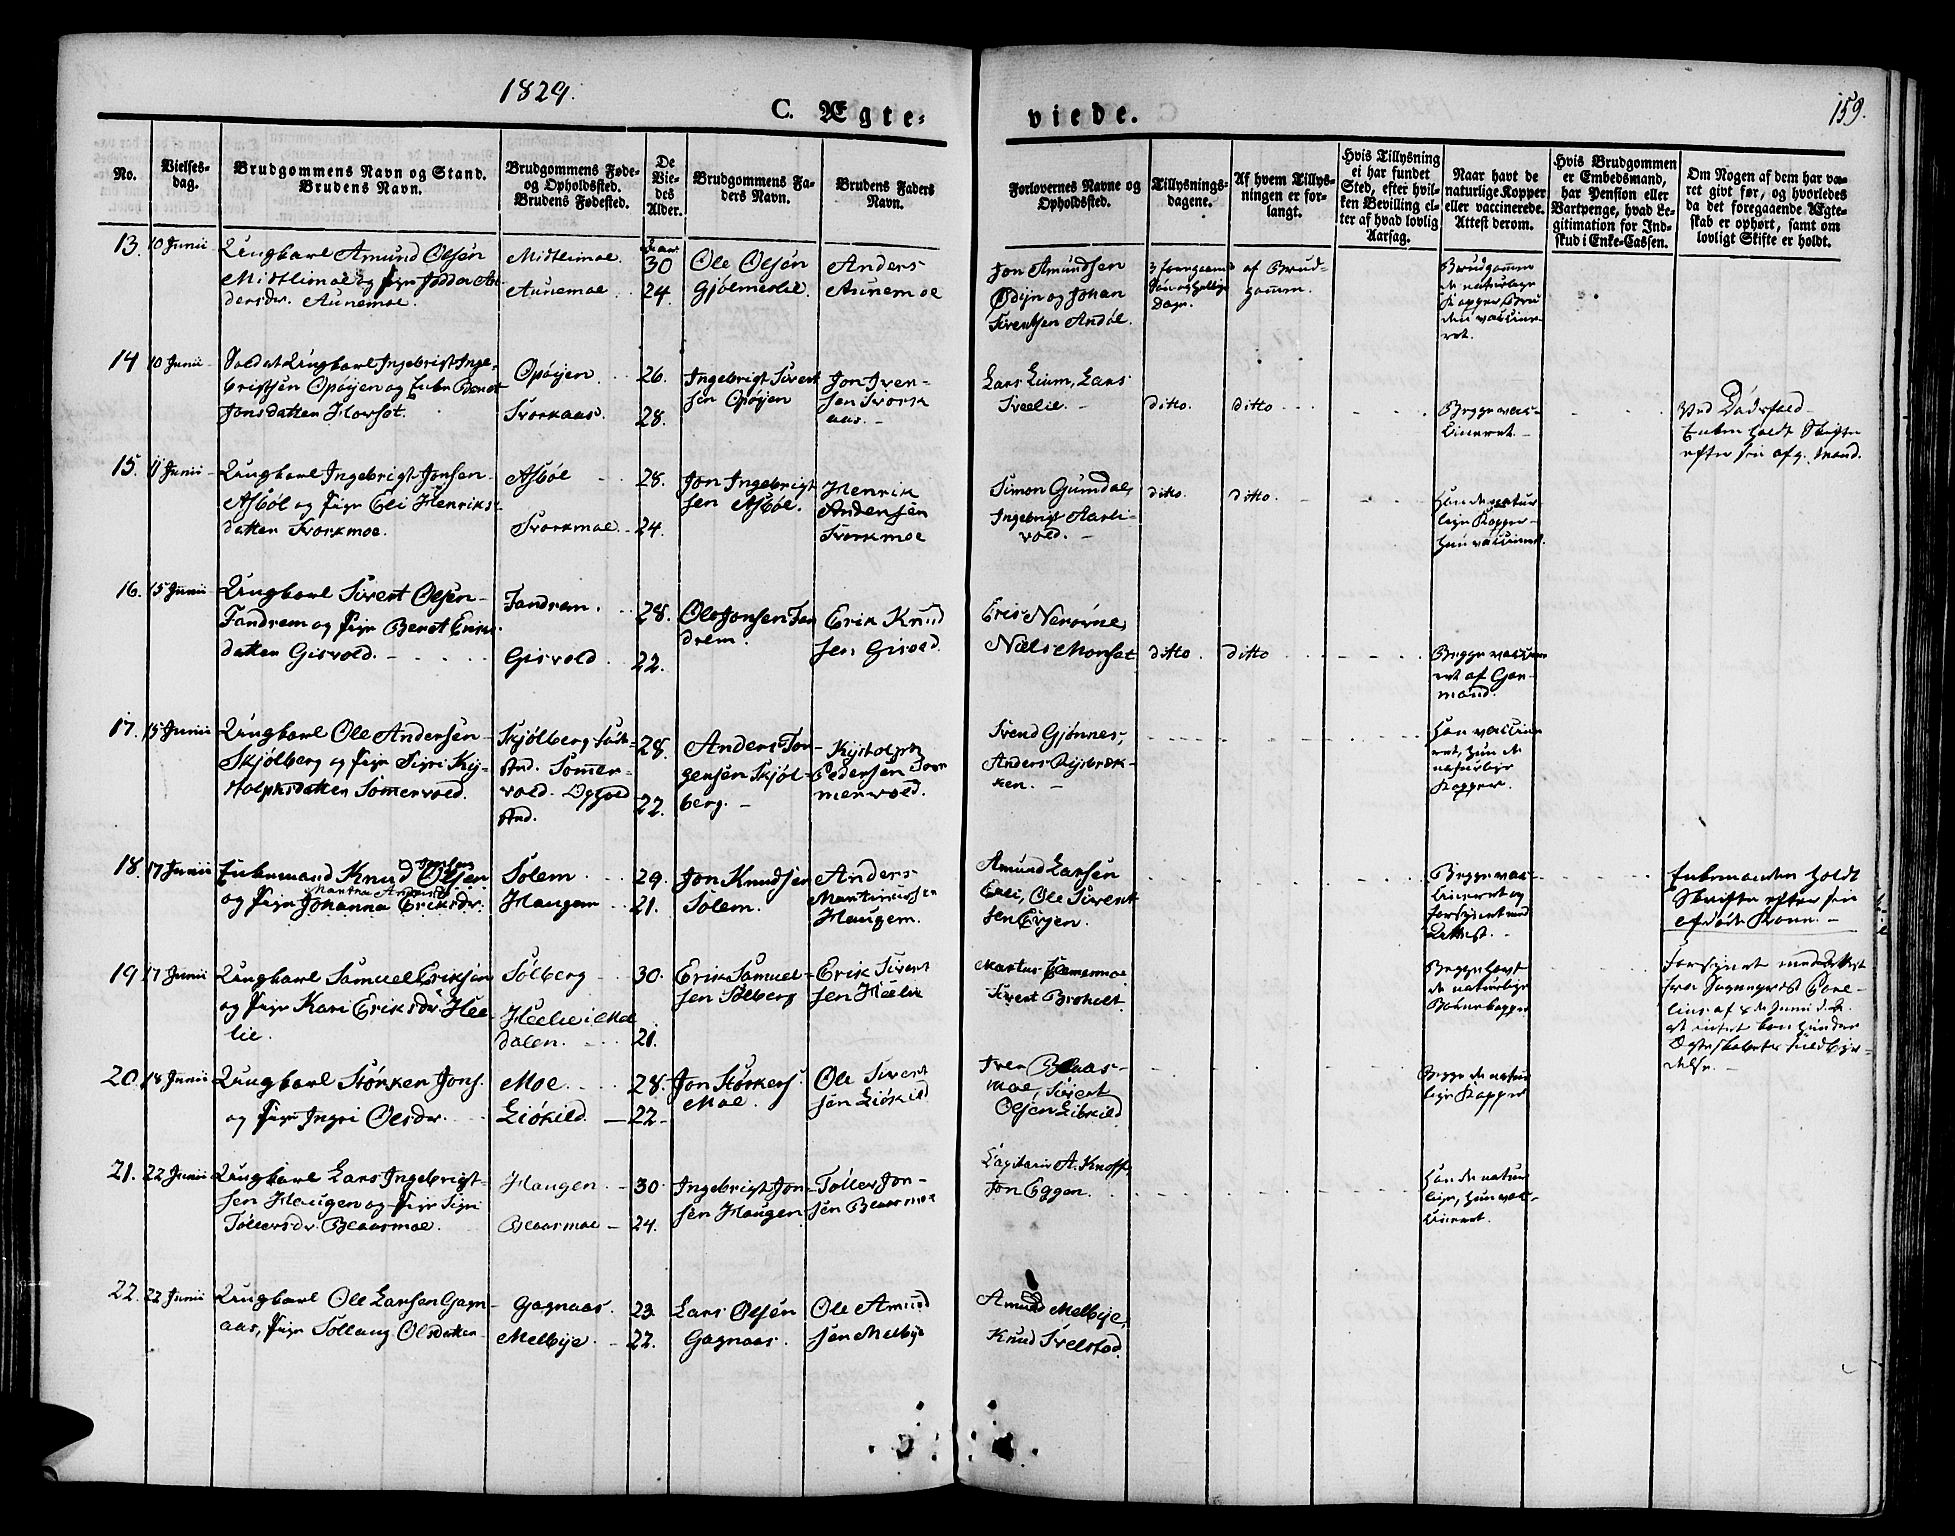 1829.
159.
C. Ægte-
viede.
No.
Vielses-
dag.
Brudgommens Navn og Stand.
Brudens Navn.
Brudgommens Føde-
og Opholdssted.
Brudens Fødested.
De
Vie-
des
Alder.
Brudgommens Fa-
ders Navn.
Brudens Faders
Navn.
Forlovernes Navne og
Opholdssted.
Tillysnings-
dagene.
Af hvem Tillys-
ningen er for-
langt.
Hvis Tillysning
ei har fundet
Sted, efter hvil-
ken Bevilling el-
ler af hvad lovlig
Aarsag.
Naar havt de
naturlige Kopper
eller vaccinerede.
Attest derom.
Hvis Brudgommen
er Embedsmand,
har Pension eller
Vartpenge, hvad Le-
gitimation for Ind-
skud i Enke-Cassen.
Om Nogen af dem har væ-
ret givt før, og hvorledes
da det foregaaende Ægte-
skab er ophørt, samt om
lovligt Skifte er holdt.
13. 10 Junii
Ungkarl Amund Olsen
Midtlimoe og Pige
dersdr. Aunemoe.
Midtlimoe.
Aunemoe
30
24.
Ole Olsen
Gjølmeslie.
Anders
Aunemoe
Jon Amundsen
Ødijn og Johan
Sivertsen Andøl.
Dage.
af Brud-
gommen.
Brudgommen
de naturlige
Kopper, Bru
den vaccine-
ret.
14 10 Junii
Soldat Ungkarl Ingebrigt Inge-
brigtsen Opøijen og Enke Beret
Jonsdatter Horsøt.
Opøijen.
Svorkaas.
26.
28.
Ingebrigt Sivert
sen Opøijen
Jon Iver-
sen Svork
aas.
Lars Lium, Lars
Sveelie.
ditto.
ditto
Begge vac-
cineret.
Ved Dødsfald
Enken holdt Skifte
efter sin afg. Mand.
15. 11 Junii
Ungkarl Ingebrigt Jonsen
Asbøl og Pige Eli Henriks-
datter Svorkmoe.
Asbøe
Svorkmoe.
28.
24.
Jon Ingebrigt
sen Asbøe.
Henrik
Andersen
Svorkmoe
Simon Gumdal,
Ingebrigt Aarli-
vold.
ditto.
ditto
Han de natur
lige Kopper
Hun vaccineret.
16. 15 Junii
Ungkarl Sivert Olsen
Fandrem og Pige Beret Eriks-
datter Gisvold.
Fandrem.
Gisvold.
28.
22.
Ole Jonsen Fan
drem.
Erik Knud
sen Gisvold.
Eric Nerøvne,
Niels Monsæt
ditto.
ditto
Begge vaccine
ret af Gar-
mand.
17. 15 Junii
Ungkarl Ole Andersen
Skjølberg og Pige Sigri Kij-
stolphsdatter Sommervold.
Skjølberg
Sommer-
vold.
28.
22.
Anders Jør
gensen Skjøl
berg.
Kijstolph
Pedersen Som
mervold.
Svend Gjønnes,
Anders Rijsbræk-
ken.
Han vaccine
ret, Hun de
naturlige
Kopper.
18. 17 Junii
Enkemand Knud Jonsen
og Pige Johanna Eriksdr.
Solem
Haugen
29.
21.
Jon Knudsen
Solem.
Anders
Martinussen
Haugem.
Amund Larsen
Evli, Ole Sivert
sen Evjen.
Begge vac-
cineret og
forsynet med
Attest.
Enkemanden holdt
Skifte efter sin
afdøde Kone.
19 17 Junii
Ungkarl Samuel Eriksen
og Pige Kari Eriksdr. Hee-
lie.
Solberg
Heelie i Mel
dalen.
30.
21.
Erik Samuel-
sen Solberg
Erik Sivert
sen Heelie
Sivert Broholt
Begge havt
de naturlige
Børnekopper
Forsynet med Attest
fra Sognepræst
lius af 4de Junii d.A.
at intet kan hindre
Ægteskabets Fuldbyr-
delse.
20. 18 Junii
Ungkarl Størker Jons.
og Pige Ingri Olsdr.
Moe.
Liøkild.
28.
22
Jon Størkers.
Moe.
Ole Sivert
sen Liøkild
Iver Blaas-
moe, Sivert
Olsen Liøkild
Begge de natur
lige Kopper
21. 22 Junii
Ungkarl Lars Ingebrigt-
sen Haugen og Pige Sigri
Tøllersdr. Blaasmoe.
Haugen
Blaasmoe
30
24.
Ingebrigt Jon-
sen Haugen
Tøller Jon-
sen Blaasmoe
Capitain A. Knoff,
Jon Eggen.
Han de natur
lige, Hun vac-
cineret.
22. 22 Junii
Ungkarl Ole Larsen Gagn-
aas, Pige Sollaug Olsdatter
Gagnaas.
Melbije.
23
22.
Lars Olsen
Gagnaas.
Ole Amund
sen Melbije
Amund Melbije,
Knud Svelstad.